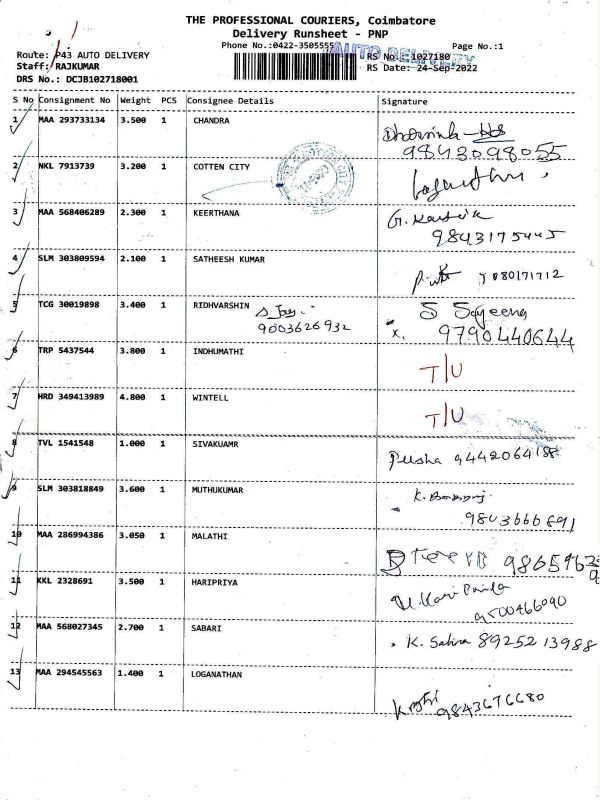 THE PROFESSIONAL COURIERS, Coimbatore
Delivery Runsheet - PNP
Phone No.:0422-3505555 Page No.:1
AUTO DELIVERY
Route: P43 AUTO DELIVERY RS No.: 1027180
Staff: RAJKUMAR RS Date: 24-Sep-2022
DRS No.: DCJB102718001
S No Consignment No Weight PCS Consignee Details Signature
1 MAA 293733134 3.500 1 CHANDRA
9843098055
2 NKL 7913739 3.200 1 COTTEN CITY
3 MAA 568406289 2.300 1 KEERTHANA G. Kartik
9843175445
4 SLM 303809594 2.100 1 SATHEESH KUMAR 7080171712
5 TCG 30019898 3.400 1 RIDHVARSHIN S Sayeena
9003626932 x. 9790440644
6 TRP 5437544 3.800 1 INDHUMATHI T/U
7 HRD 349413989 4.800 1 WINTELL T/U
8 TVL 1541548 1.000 1 SIVAKUAMR Pusha 9442064188
9 SLM 303818849 3.600 1 MUTHUKUMAR K.
9843666891
10 MAA 286994386 3.050 1 MALATHI
11 KKL 2328691 3.500 1 HARIPRIYA
9500466090
12 MAA 568027345 2.700 1 SABARI K. Sabira 89252 13988
13 MAA 294545563 1.400 1 LOGANATHAN
9843676680